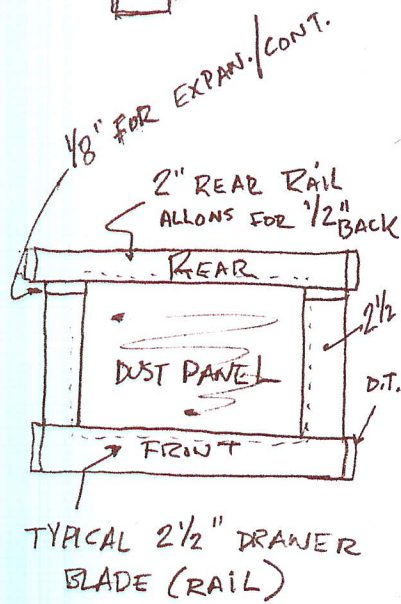 1/8" FOR EXPAN./CONT.
2" REAR RAIL
ALLONS FOR 1/2" BACK
REAR
2 1/2
DUST PANEL
D.T.
FRONT
TYPICAL 2 1/2" DRAWER
BLADE (RAIL)